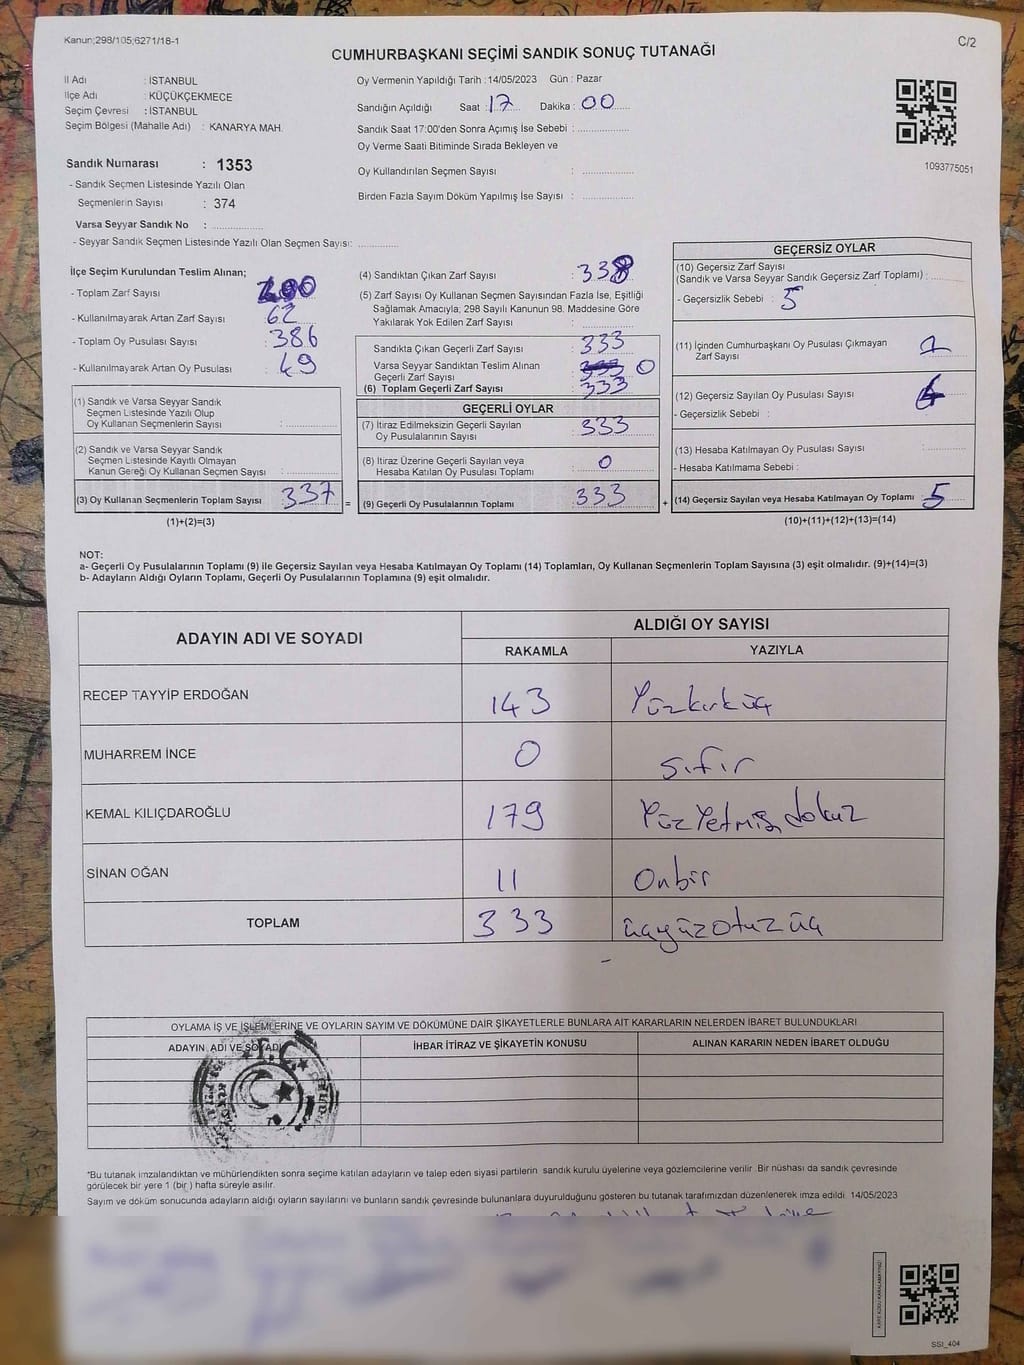 Kanun;298/105;6271/18-1
C/2
CUMHURBAŞKANI SEÇİMİ SANDIK SONUÇ TUTANAĞI
İl Adı : İSTANBUL
İlçe Adı : KÜÇÜKÇEKMECE
Seçim Çevresi : İSTANBUL
Seçim Bölgesi (Mahalle Adı) : KANARYA MAH.
Sandık Numarası : 1353
- Sandık Seçmen Listesinde Yazılı Olan
Seçmenlerin Sayısı : 374
Varsa Seyyar Sandık No :
- Seyyar Sandık Seçmen Listesinde Yazılı Olan Seçmen Sayısı:
Oy Vermenin Yapıldığı Tarih :14/05/2023 Gün : Pazar
Sandığın Açıldığı Saat : 17 Dakika : 00
Sandık Saat 17:00'den Sonra Açımış İse Sebebi :
Oy Verme Saati Bitiminde Sırada Bekleyen ve
Oy Kullandırılan Seçmen Sayısı :
Birden Fazla Sayım Döküm Yapılmış İse Sayısı :
1093775051
İlçe Seçim Kurulundan Teslim Alınan;
- Toplam Zarf Sayısı
- Kullanılmayarak Artan Zarf Sayısı : 62
- Toplam Oy Pusulası Sayısı : 386
- Kullanılmayarak Artan Oy Pusulası : 49
(1) Sandık ve Varsa Seyyar Sandık
Seçmen Listesinde Yazılı Olup
Oy Kullanan Seçmenlerin Sayısı :
(2) Sandık ve Varsa Seyyar Sandık
Seçmen Listesinde Kayıtlı Olmayan
Kanun Gereği Oy Kullanan Seçmen Sayısı :
(3) Oy Kullanan Seçmenlerin Toplam Sayısı : 337 =
(1)+(2)=(3)
(4) Sandıktan Çıkan Zarf Sayısı : 338
(5) Zarf Sayısı Oy Kullanan Seçmen Sayısından Fazla İse, Eşitliği
Sağlamak Amacıyla; 298 Sayılı Kanunun 98. Maddesine Göre
Yakılarak Yok Edilen Zarf Sayısı :
Sandıkta Çıkan Geçerli Zarf Sayısı : 333
Varsa Seyyar Sandıktan Teslim Alınan
Geçerli Zarf Sayısı : 0
(6) Toplam Geçerli Zarf Sayısı : 333
GEÇERLİ OYLAR
(7) İtiraz Edilmeksizin Geçerli Sayılan
Oy Pusulalarının Sayısı : 333
(8) İtiraz Üzerine Geçerli Sayılan veya
Hesaba Katılan Oy Pusulası Toplamı : 0
(9) Geçerli Oy Pusulalarının Toplamı : 333 +
GEÇERSİZ OYLAR
(10) Geçersiz Zarf Sayısı
(Sandık ve Varsa Seyyar Sandık Geçersiz Zarf Toplamı) :
- Geçersizlik Sebebi : 5
(11) İçinden Cumhurbaşkanı Oy Pusulası Çıkmayan
Zarf Sayısı :
(12) Geçersiz Sayılan Oy Pusulası Sayısı :
- Geçersizlik Sebebi :
(13) Hesaba Katılmayan Oy Pusulası Sayısı :
- Hesaba Katılmama Sebebi :
(14) Geçersiz Sayılan veya Hesaba Katılmayan Oy Toplamı : 5
(10)+(11)+(12)+(13)=(14)
NOT:
a- Geçerli Oy Pusulalarının Toplamı (9) ile Geçersiz Sayılan veya Hesaba Katılmayan Oy Toplamı (14) Toplamları, Oy Kullanan Seçmenlerin Toplam Sayısına (3) eşit olmalıdır. (9)+(14)=(3)
b- Adayların Aldığı Oyların Toplamı, Geçerli Oy Pusulalarının Toplamına (9) eşit olmalıdır.
ADAYIN ADI VE SOYADI ALDIĞI OY SAYISI
RAKAMLA YAZIYLA
RECEP TAYYİP ERDOĞAN 143 Yüzkırküç
MUHARREM İNCE 0 sıfır
KEMAL KILIÇDAROĞLU 179 YüzYetmiş dokuz
SİNAN OĞAN 11 Onbir
TOPLAM 333 üçyüzotuzüç
OYLAMA İŞ VE İŞLEMLERİNE VE OYLARIN SAYIM VE DÖKÜMÜNE DAİR ŞİKAYETLERLE BUNLARA AİT KARARLARIN NELERDEN İBARET BULUNDUKLARI
ADAYIN ADI VE SOYADI İHBAR İTİRAZ VE ŞİKAYETİN KONUSU ALINAN KARARIN NEDEN İBARET OLDUĞU
T.C.
*Bu tutanak imzalandıktan ve mühürlendikten sonra seçime katılan adayların ve talep eden siyasi partilerin sandık kurulu üyelerine veya gözlemcilerine verilir. Bir nüshası da sandık çevresinde
görülecek bir yere 1 (bir ) hafta süreyle asılır.
Sayım ve döküm sonucunda adayların aldığı oyların sayılarını ve bunların sandık çevresinde bulunanlara duyurulduğunu gösteren bu tutanak tarafımızdan düzenlenerek imza edildi. 14/05/2023
KARE KODU KARALAMAYINIZ!
SSI_404